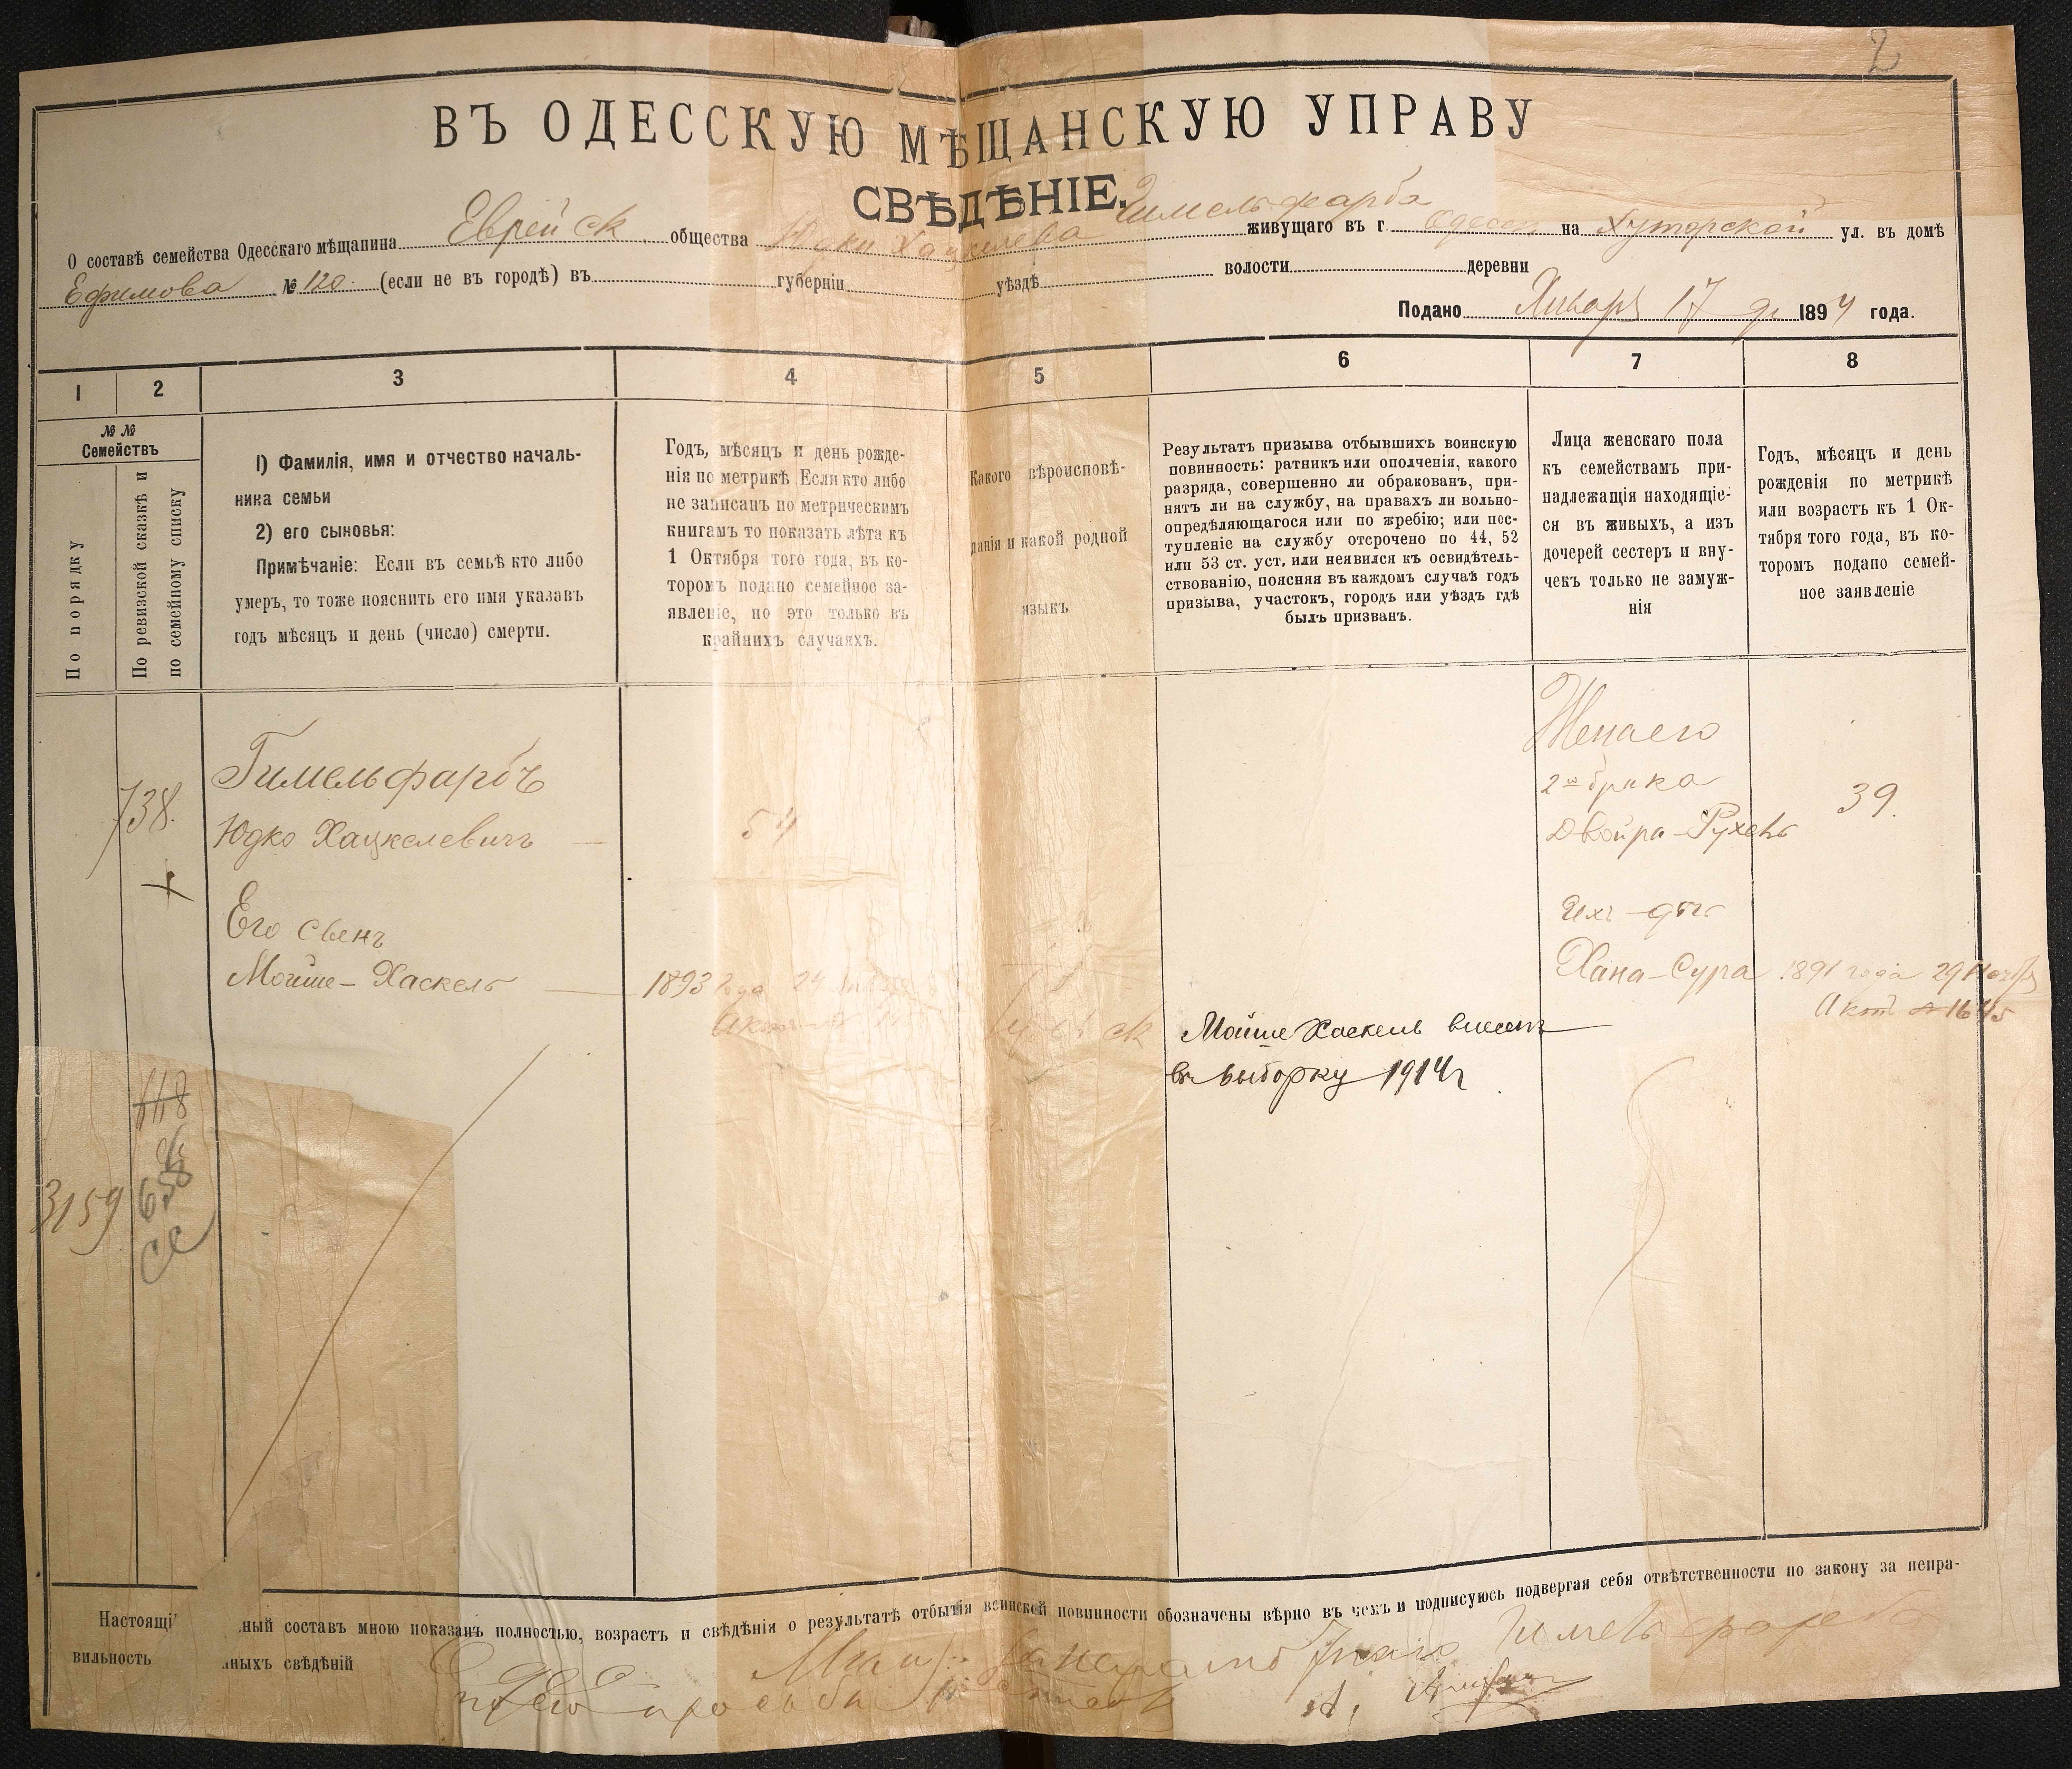 2
ВЪ ОДЕССКУЮ МѢЩАНСКУЮ УПРАВУ
СВѢДѢНІЕ.
О составѣ семейства Одесскаго мѣщанина Еврейск общества Юдки Хацкелева Гимельфарба живущаго въ г. Одессѣ на Хуторской ул. въ домѣ
Ефимова № 120. (если не въ городѣ) въ губерніи уѣздѣ волости деревни
Подано Январь 17 д. 1894 года.
1 2 3 4 5 6 7 8
№ №
Семействъ
По порядку
По ревизской сказкѣ и
по семейному списку
1) Фамилія, имя и отчество началь-
ника семьи
2) его сыновья:
Примѣчаніе: Если въ семьѣ кто либо
умеръ, то тоже пояснить его имя указавъ
годъ мѣсяцъ и день (число) смерти.
Годъ, мѣсяцъ и день рожде-
нія по метрикѣ Если кто либо
не записанъ по метрическимъ
книгамъ то показать лѣта къ
1 Октября того года, въ ко-
торомъ подано семейное за-
явленіе, но это только въ
крайнихъ случаяхъ.
Какого вѣроисповѣ-
данія и какой родной
языкъ
Результатъ призыва отбывшихъ воинскую
повинность: ратникъ или ополченія, какого
разряда, совершенно ли обракованъ, при-
нятъ ли на службу, на правахъ ли вольно-
опредѣляющагося или по жребію; или пос-
тупленіе на службу отсрочено по 44, 52
или 53 ст. уст, или неявился къ освидѣтель-
ствованію, поясняя въ каждомъ случаѣ годъ
призыва, участокъ, городъ или уѣздъ гдѣ
былъ призванъ.
Лица женскаго пола
къ семействамъ при-
надлежащія находящіе-
ся въ живыхъ, а изъ
дочерей сестеръ и вну-
чекъ только не замуж-
нія
Годъ, мѣсяцъ и день
рожденія по метрикѣ
или возрастъ къ 1 Ок-
тября того года, въ ко-
торомъ подано семей-
ное заявленіе
738.
Гимельфарбъ
Юдко Хацкелевичъ
54
Жена его
2го брака
Двойра-Рухель
39.
Его сынъ
Мойше-Хаскель
1893 года 24
Ихъ дочь
Хана-Сура
1891 года 29 Ноября
Актъ № 1645
Мойше Хаскель внесенъ
въ выборку 1914г.
448
658
3159
Настоящі ный составъ мною показанъ полностью, возрастъ и свѣдѣнія о результатѣ отбытія воинской повинности обозначены вѣрно въ чемъ и подписуюсь подвергая себя отвѣтственности по закону за непра-
вильность нныхъ свѣдѣній
Гимельфарба
его просьбѣ